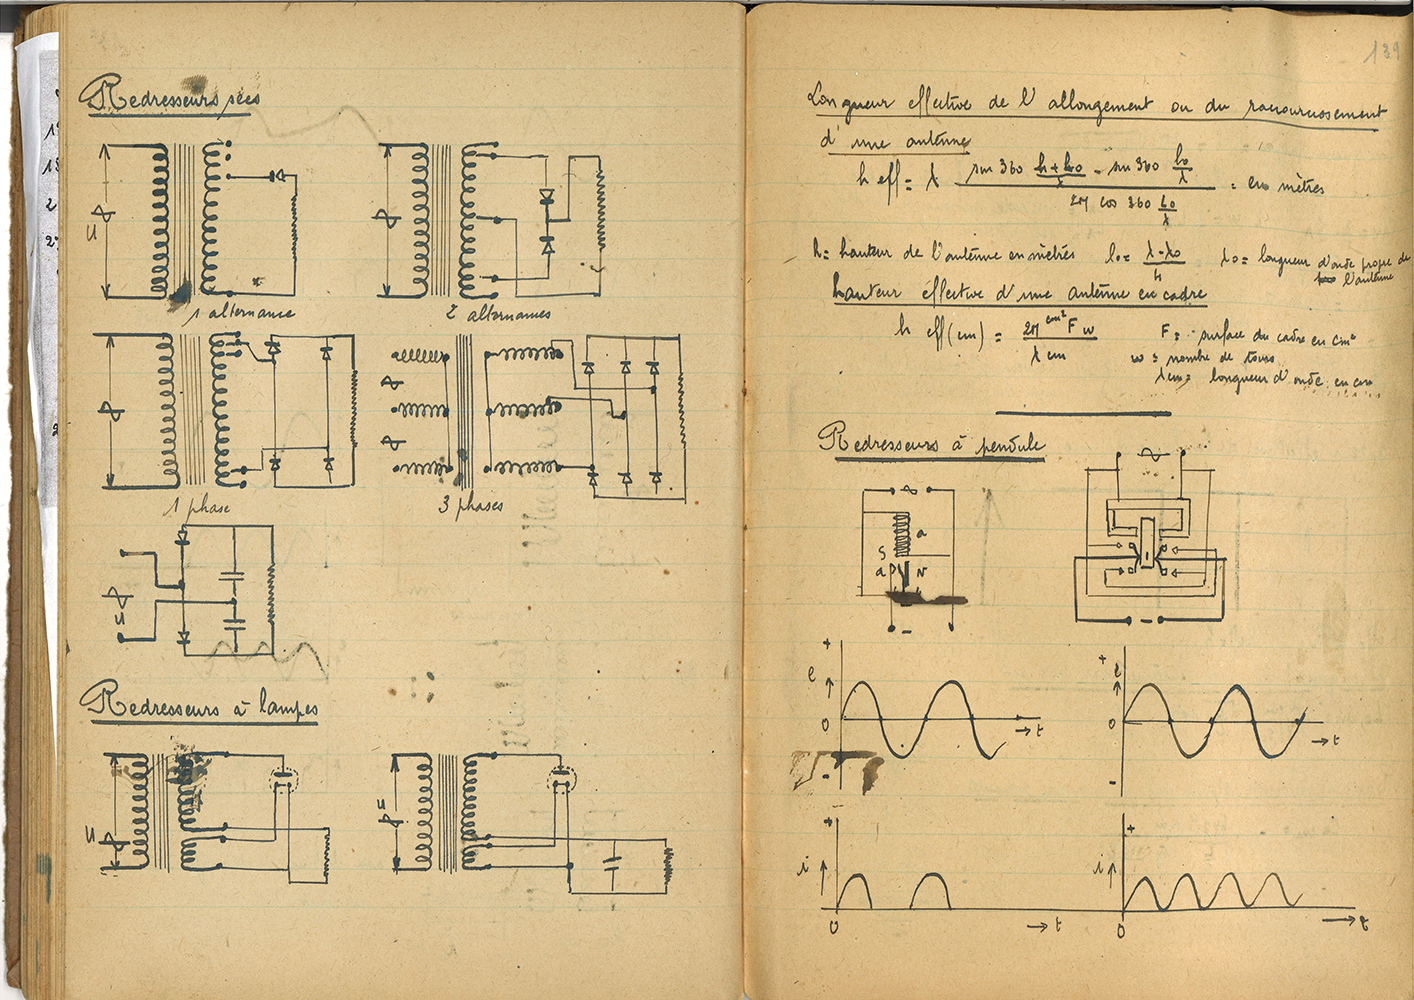 Redresseurs secs
U
1 alternance
2 alternances
1 phase
3 phases
u
Redresseurs à lampes
U
u
139
Longueur effective de l'allongement ou du raccourcissement
d'une antenne
h eff = λ (sin 360 (h + ho)/λ - sin 360 ho/λ) / (2π cos 360 lo/λ) = en mètres
h = hauteur de l'antenne en mètres lo = (λ - λo)/4 λo = longueur d'onde propre de
l'antenne
hauteur effective d'une antenne en cadre
h eff (cm) = 2π cm² F w / λ cm F = surface du cadre en cm²
w = nombre de tours
λ cm = longueur d'onde en cm
Redresseurs à pendule
a
S
a N
-
-
+
e
0
→ t
-
+
e
0
→ t
-
+
i
0
→ t
+
i
0
→ t